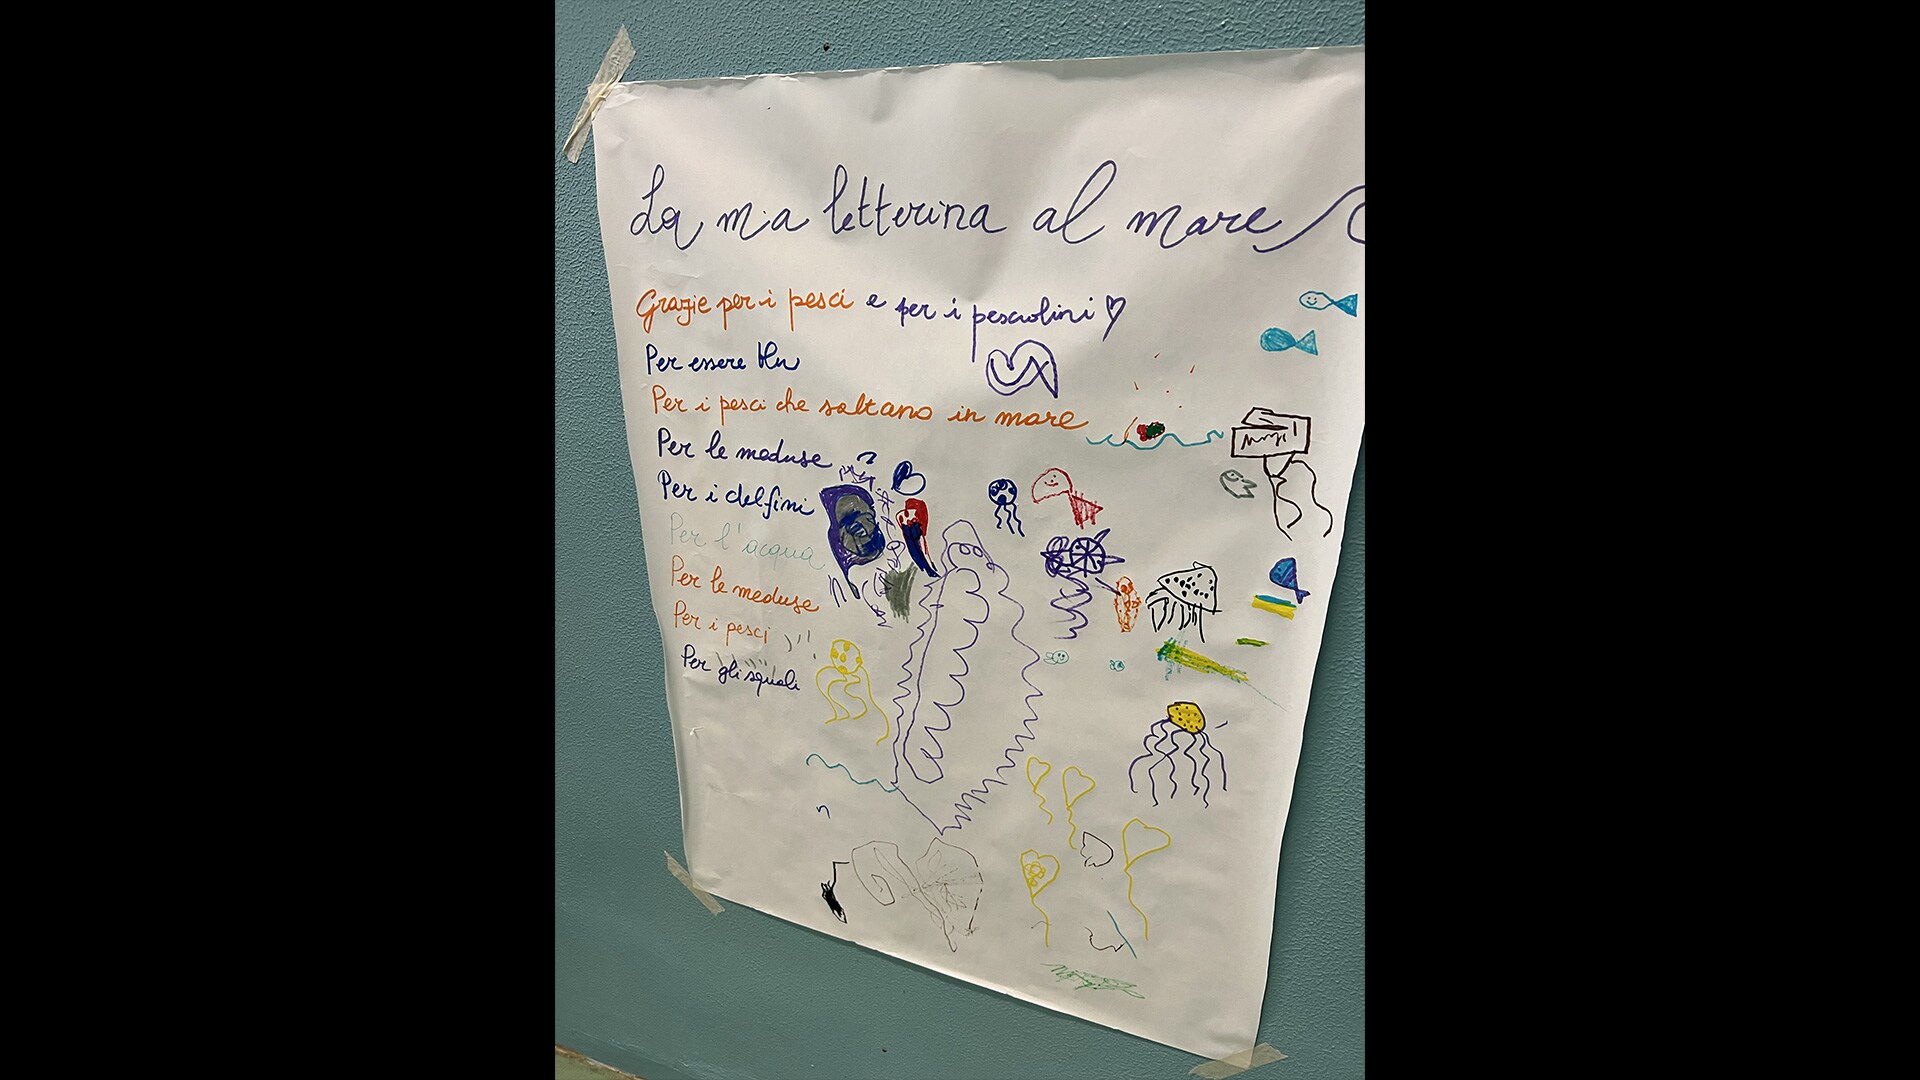 La mia letterina al mare
Grazie per i pesci e per i pesciolini
Per essere blu
Per i pesci che saltano in mare
Per le meduse
Per i delfini
Per l'acqua
Per le meduse
Per i pesci
Per gli squali